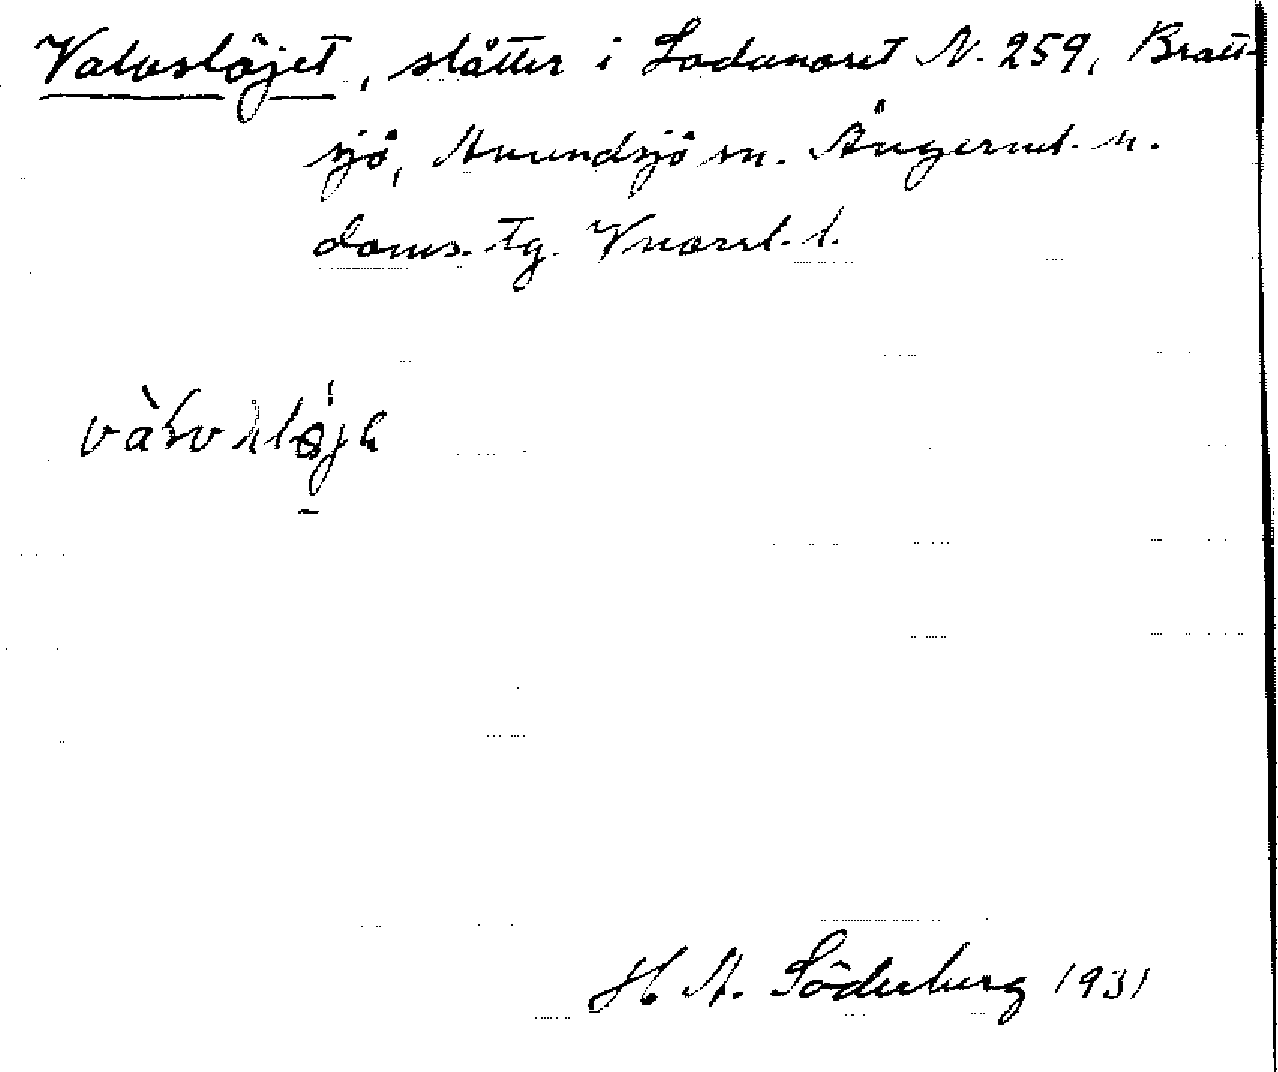 Valvslöjet, slåtter i Ladunaret N. 259, Bratt-
sjö, Anundsjö sn. Ångerml. n.
doms. tg. Vnorrl. l.
H A. Söderberg 1931